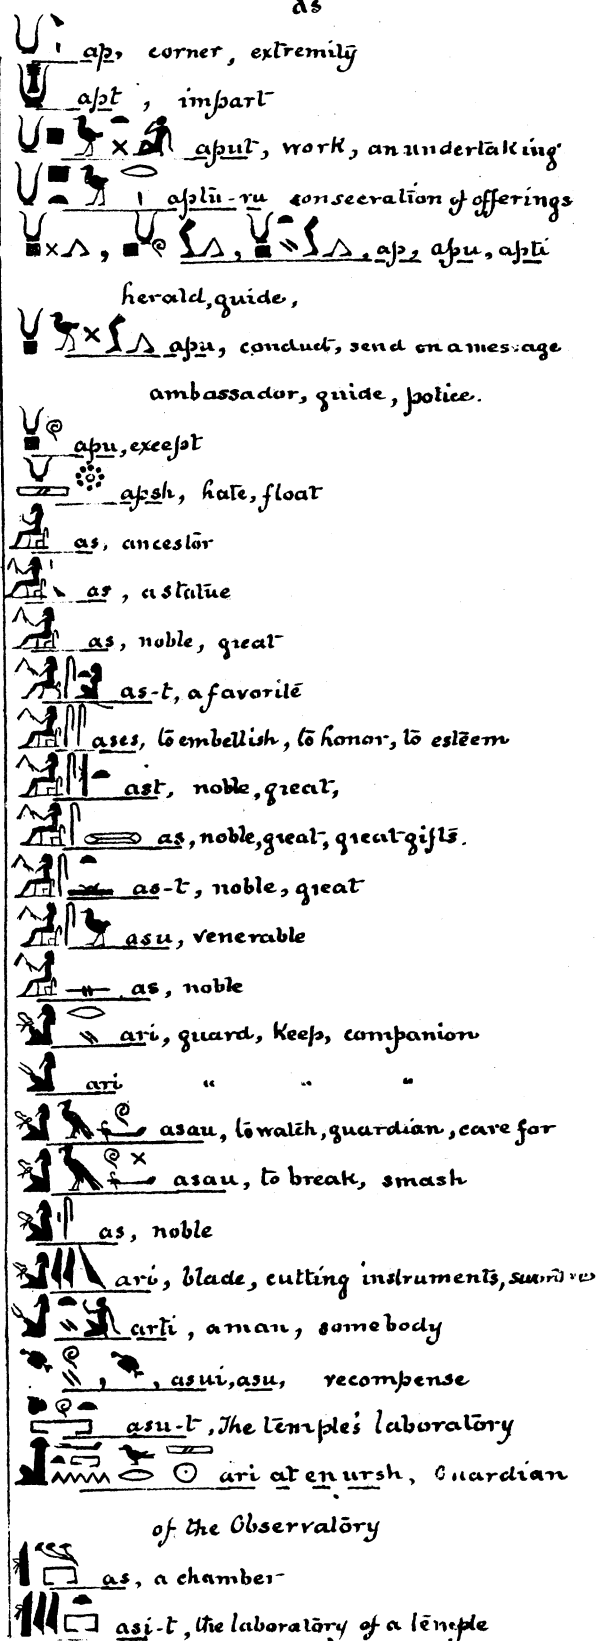 as
ap, corner, extremity
apt, impart
aput, work, an undertaking
aptu-ru consecration of offerings
ap, apu, apti
herald, guide,
apu, conduct, send on a message
ambassador, guide, police.
apu, except
apsh, hate, float
as, ancestor
as, a statue
as, noble, great
as-t, a favorite
ases, to embellish, to honor, to esteem
ast, noble, great,
as, noble, great, great gifts.
as-t, noble, great
asu, venerable
as, noble
ari, guard, keep, companion
ari " " "
asau, to watch, guardian, care for
asau, to break, smash
as, noble
ari, blade, cutting instruments,
arti, a man, somebody
asui, asu, recompense
asu-t, The temple's laboratory
ari at en ursh, Guardian
of the Observatory
as, a chamber
asi-t, the laboratory of a temple